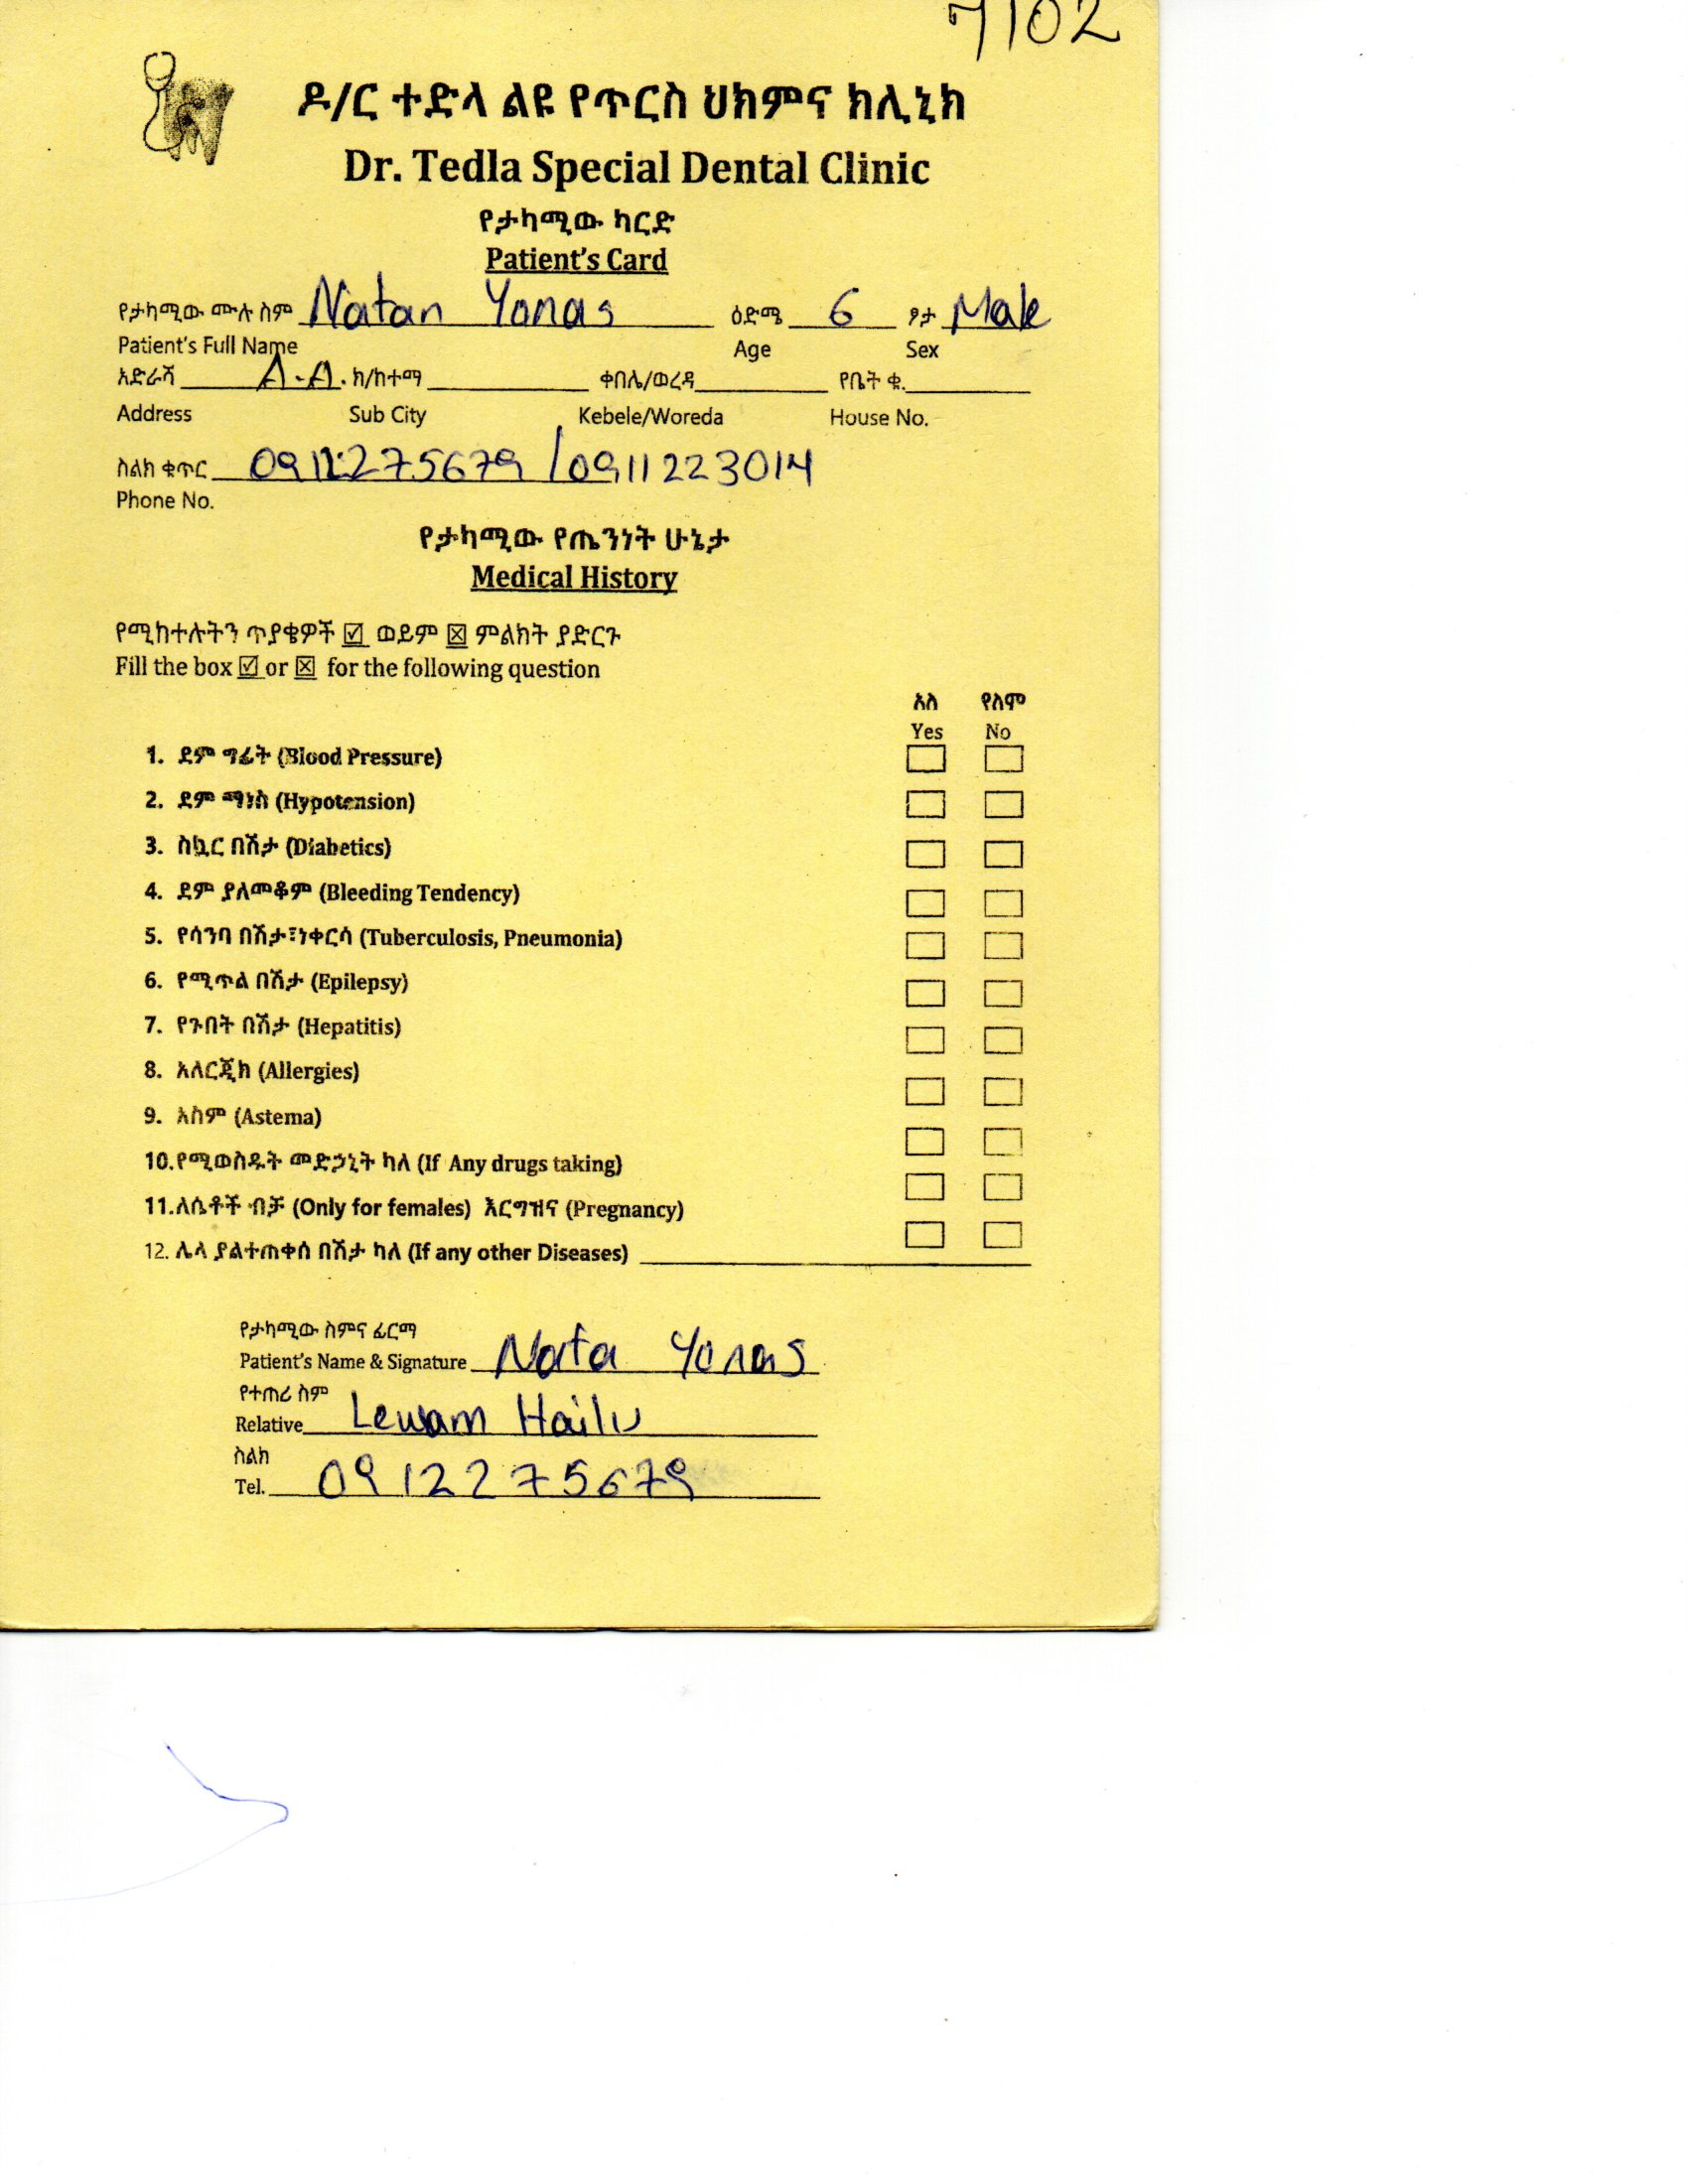 7102
ዶ/ር ተድላ ልዩ የጥርስ ህክምና ክሊኒክ
Dr. Tedla Special Dental Clinic
የታካሚው ካርድ
Patient's Card
የታካሚው ሙሉ ስም Natan Yonas ዕድሜ 6 ፆታ Male
Patient's Full Name Age Sex
አድራሻ A.A. ክ/ከተማ ቀበሌ/ወረዳ የቤት ቁ.
Address Sub City Kebele/Woreda House No.
ስልክ ቁጥር 0912275679 / 0911223014
Phone No.
የታካሚው የጤንነት ሁኔታ
Medical History
የሚከተሉትን ጥያቄዎች ☑ ወይም ☒ ምልክት ያድርጉ
Fill the box ☑ or ☒ for the following question
አለ የለም
Yes No
1. ደም ግፊት (Blood Pressure)
2. ደም ማነስ (Hypotension)
3. ስኳር በሽታ (Diabetics)
4. ደም ያለመቆም (Bleeding Tendency)
5. የሳንባ በሽታ፣ነቀርሳ (Tuberculosis, Pneumonia)
6. የሚጥል በሽታ (Epilepsy)
7. የጉበት በሽታ (Hepatitis)
8. አለርጂክ (Allergies)
9. አስም (Astema)
10.የሚወስዱት መድኃኒት ካለ (If Any drugs taking)
11.ለሴቶች ብቻ (Only for females) እርግዝና (Pregnancy)
12. ሌላ ያልተጠቀሰ በሽታ ካለ (If any other Diseases)
የታካሚው ስምና ፊርማ
Patient's Name & Signature Nata Yonas
የተጠሪ ስም
Relative Lewam Hailu
ስልክ
Tel. 0912275679